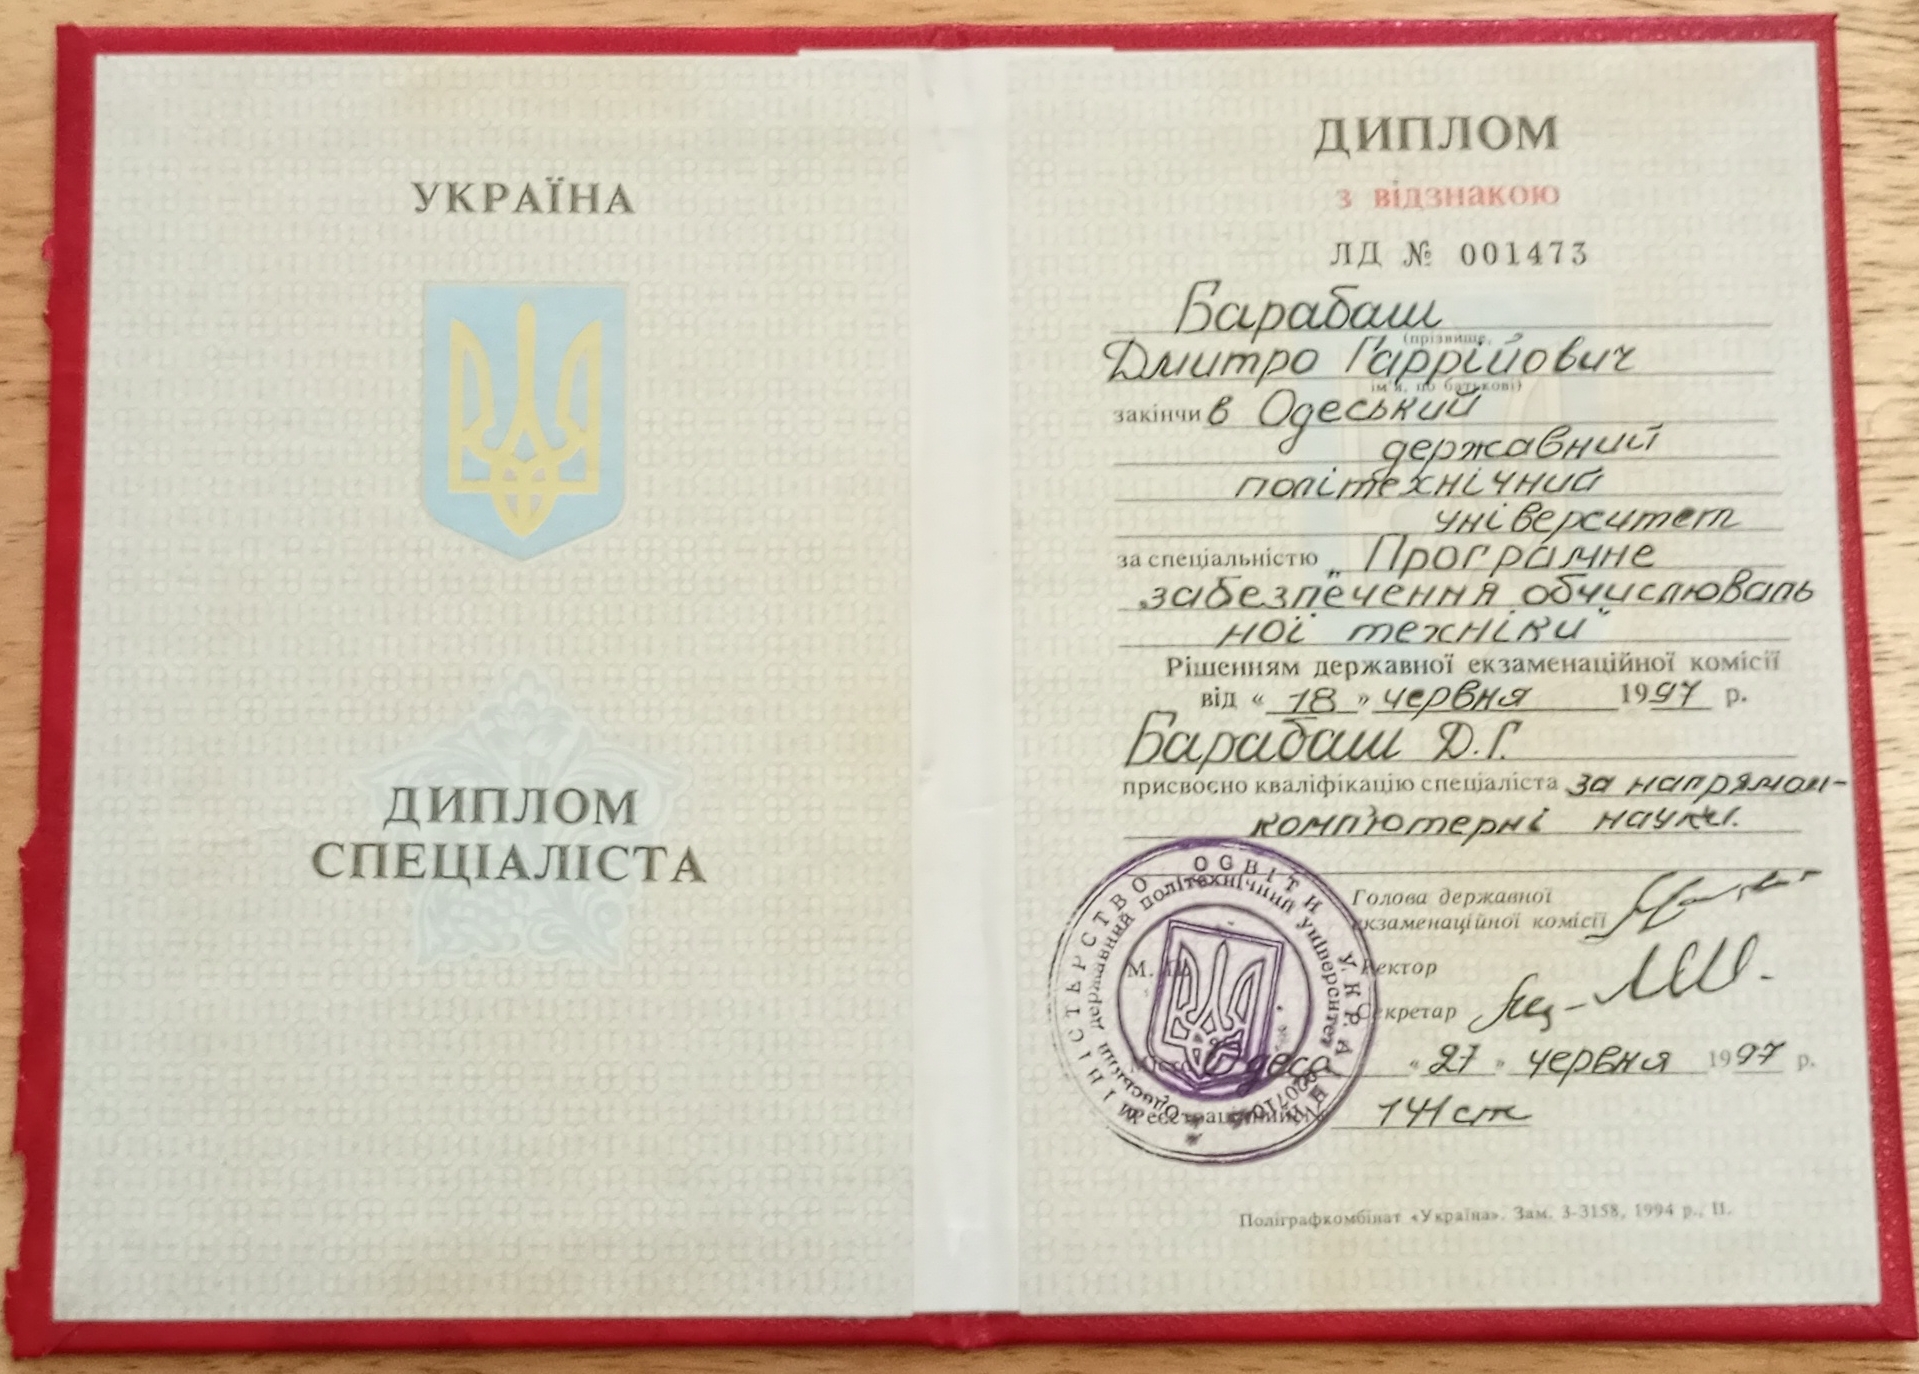 УКРАЇНА
ДИПЛОМ
СПЕЦІАЛІСТА
ДИПЛОМ
з відзнакою
ЛД № 001473
Барабаш
(прізвище,
Дмитро Гаррійович
ім'я, по батькові)
закінчив Одеський
державний
політехнічний
університет
за спеціальністю „Програмне
забезпечення обчислюваль
ної техніки"
Рішенням державної екзаменаційної комісії
від « 18 » червня 1997 р.
Барабаш Д.Г.
присвоєно кваліфікацію спеціаліста за напрямом-
комп'ютерні науки.
Голова державної
екзаменаційної комісії
М. П.
Ректор
Секретар
Місто Одеса « 27 » червня 1997 р.
Реєстраційний № 141ст
МІНІСТЕРСТВО ОСВІТИ УКРАЇНИ
Одеський державний політехнічний університет
Поліграфкомбінат «Україна». Зам. 3-3158, 1994 р., II.